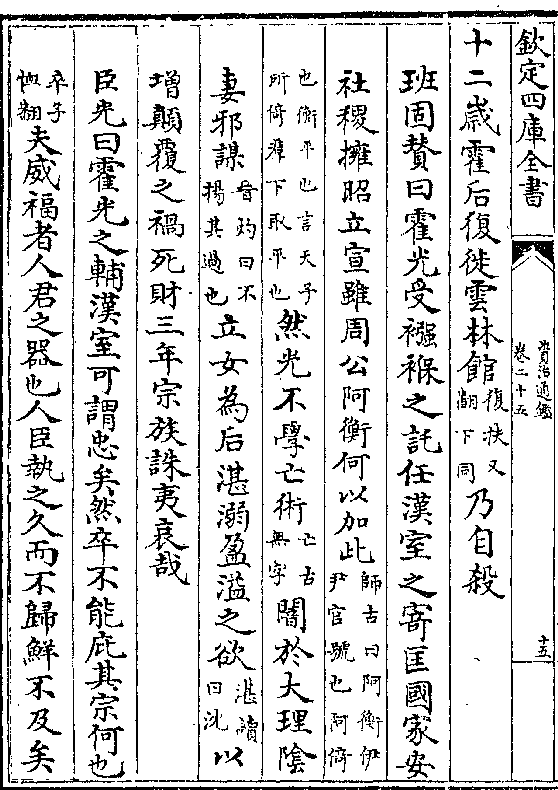 欽定四庫全書
資治通鑑
卷二十五
十五
十二歲霍后復徙雲林館復扶又翻下同乃自殺
班固贊曰霍光受襁褓之託任漢室之寄匡國家安
社稷擁昭立宣雖周公阿衡何以加此師古曰阿衡伊尹官號也阿倚
也衡平也言天子所倚羣下取平也然光不學亡術亡古無字闇於大理陰
妻邪謀晉灼曰不揚其過也立女為后湛溺盈溢之欲湛讀曰沈以
增顛覆之禍死財三年宗族誅夷哀哉
臣光曰霍光之輔漢室可謂忠矣然卒不能庇其宗何也
卒子恤翻夫威福者人君之器也人臣執之久而不歸鮮不及矣